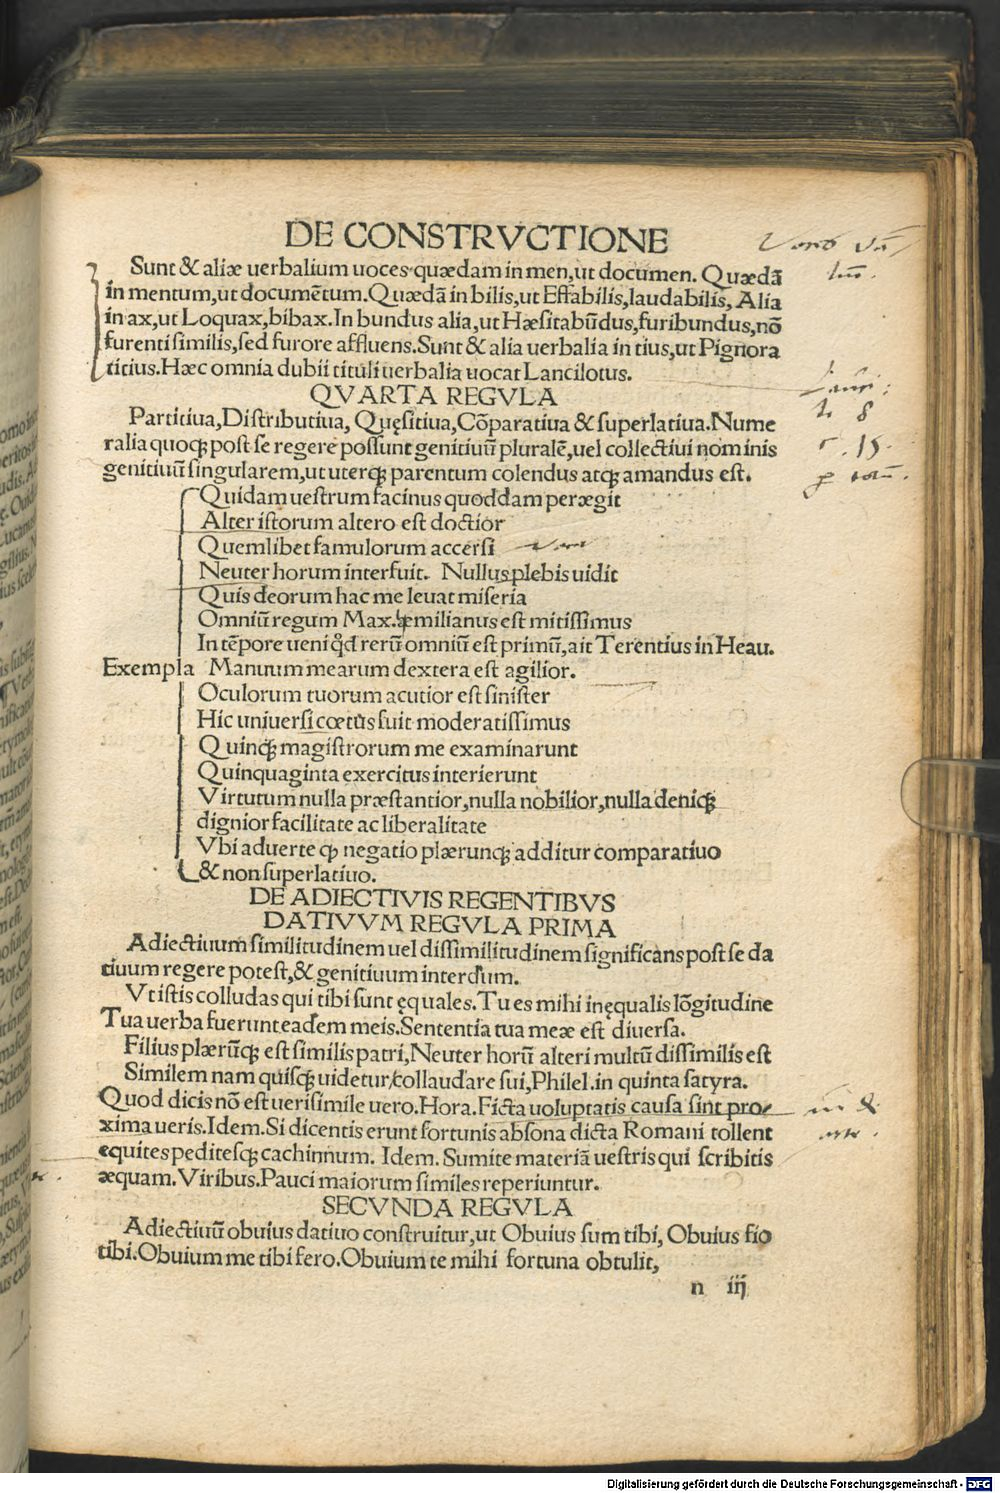 DE CONSTRVCTIONE
Sunt & aliæ uerbalium uoces quædam in men, ut documen. Quædā
in mentum, ut documētum. Quædā in bilis, ut Effabilis, laudabilis, Alia
in ax, ut Loquax, bibax. In bundus alia, ut Hæsitabūdus, furibundus, nō
furenti similis, sed furore affluens. Sunt & alia uerbalia in tius, ut Pignora
titius. Hæc omnia dubii tituli uerbalia uocat Lancilotus.
QVARTA REGVLA
Partitiua, Distributiua, Quęsitiua, Cōparatiua & superlatiua. Nume
ralia quoqꝫ post se regere possunt genitiuū pluralē, uel collectiui nominis
genitiuū singularem, ut uterqꝫ parentum colendus atqꝫ amandus est.
Quidam uestrum facinus quoddam peræegit
Alter istorum altero est doctior
Quemlibet famulorum accersi
Neuter horum interfuit. Nullus plebis uidit
Quis deorum hac me leuat miseria
Omniū regum Max. æmilianus est mitissimus
In tēpore ueni qđ rerū omniū est primū, ait Terentius in Heau.
Exempla Manuum mearum dextera est agilior.
Oculorum tuorum acutior est sinister
Hic uniuersi cœtus fuit moderatissimus
Quinqꝫ magistrorum me examinarunt
Quinquaginta exercitus interierunt
Virtutum nulla præstantior, nulla nobilior, nulla deniqꝫ
dignior facilitate ac liberalitate
Vbi aduerte ꝙ negatio plærunqꝫ additur comparatiuo
& non superlatiuo.
DE ADIECTIVIS REGENTIBVS
DATIVVM REGVLA PRIMA
Adiectiuum similitudinem uel dissimilitudinem significans post se da
tiuum regere potest, & genitiuum interdum.
Vt istis colludas qui tibi sunt ęquales. Tu es mihi inęqualis lōgitudine
Tua uerba fuerunt eadem meis. Sententia tua meæ est diuersa.
Filius plærūqꝫ est similis patri, Neuter horū alteri multū dissimilis est
Similem nam quisqꝫ uidetur collaudare sui, Philel. in quinta satyra.
Quod dicis nō est uerisimile uero. Hora. Ficta uoluptatis causa sint pro-
xima ueris. Idem. Si dicentis erunt fortunis absona dicta Romani tollent
equites peditesqꝫ cachinnum. Idem. Sumite materiā uestris qui scribitis
æquam. Viribus. Pauci maiorum similes reperiuntur.
SECVNDA REGVLA
Adiectiuū obuius datiuo construitur, ut Obuius sum tibi, Obuius fio
tibi. Obuium me tibi fero. Obuium te mihi fortuna obtulit,
n iij
Digitalisierung gefördert durch die Deutsche Forschungsgemeinschaft - DFG